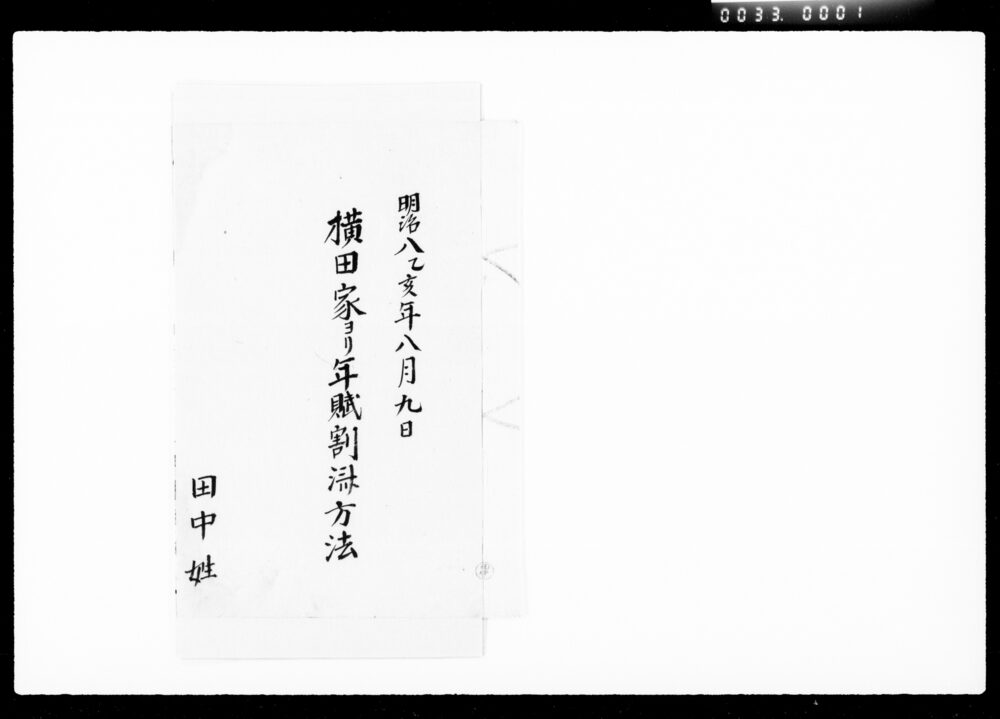 0033. 0001
明治八乙亥年八月九日
横田家ヨリ年賦割済方法
田中姓